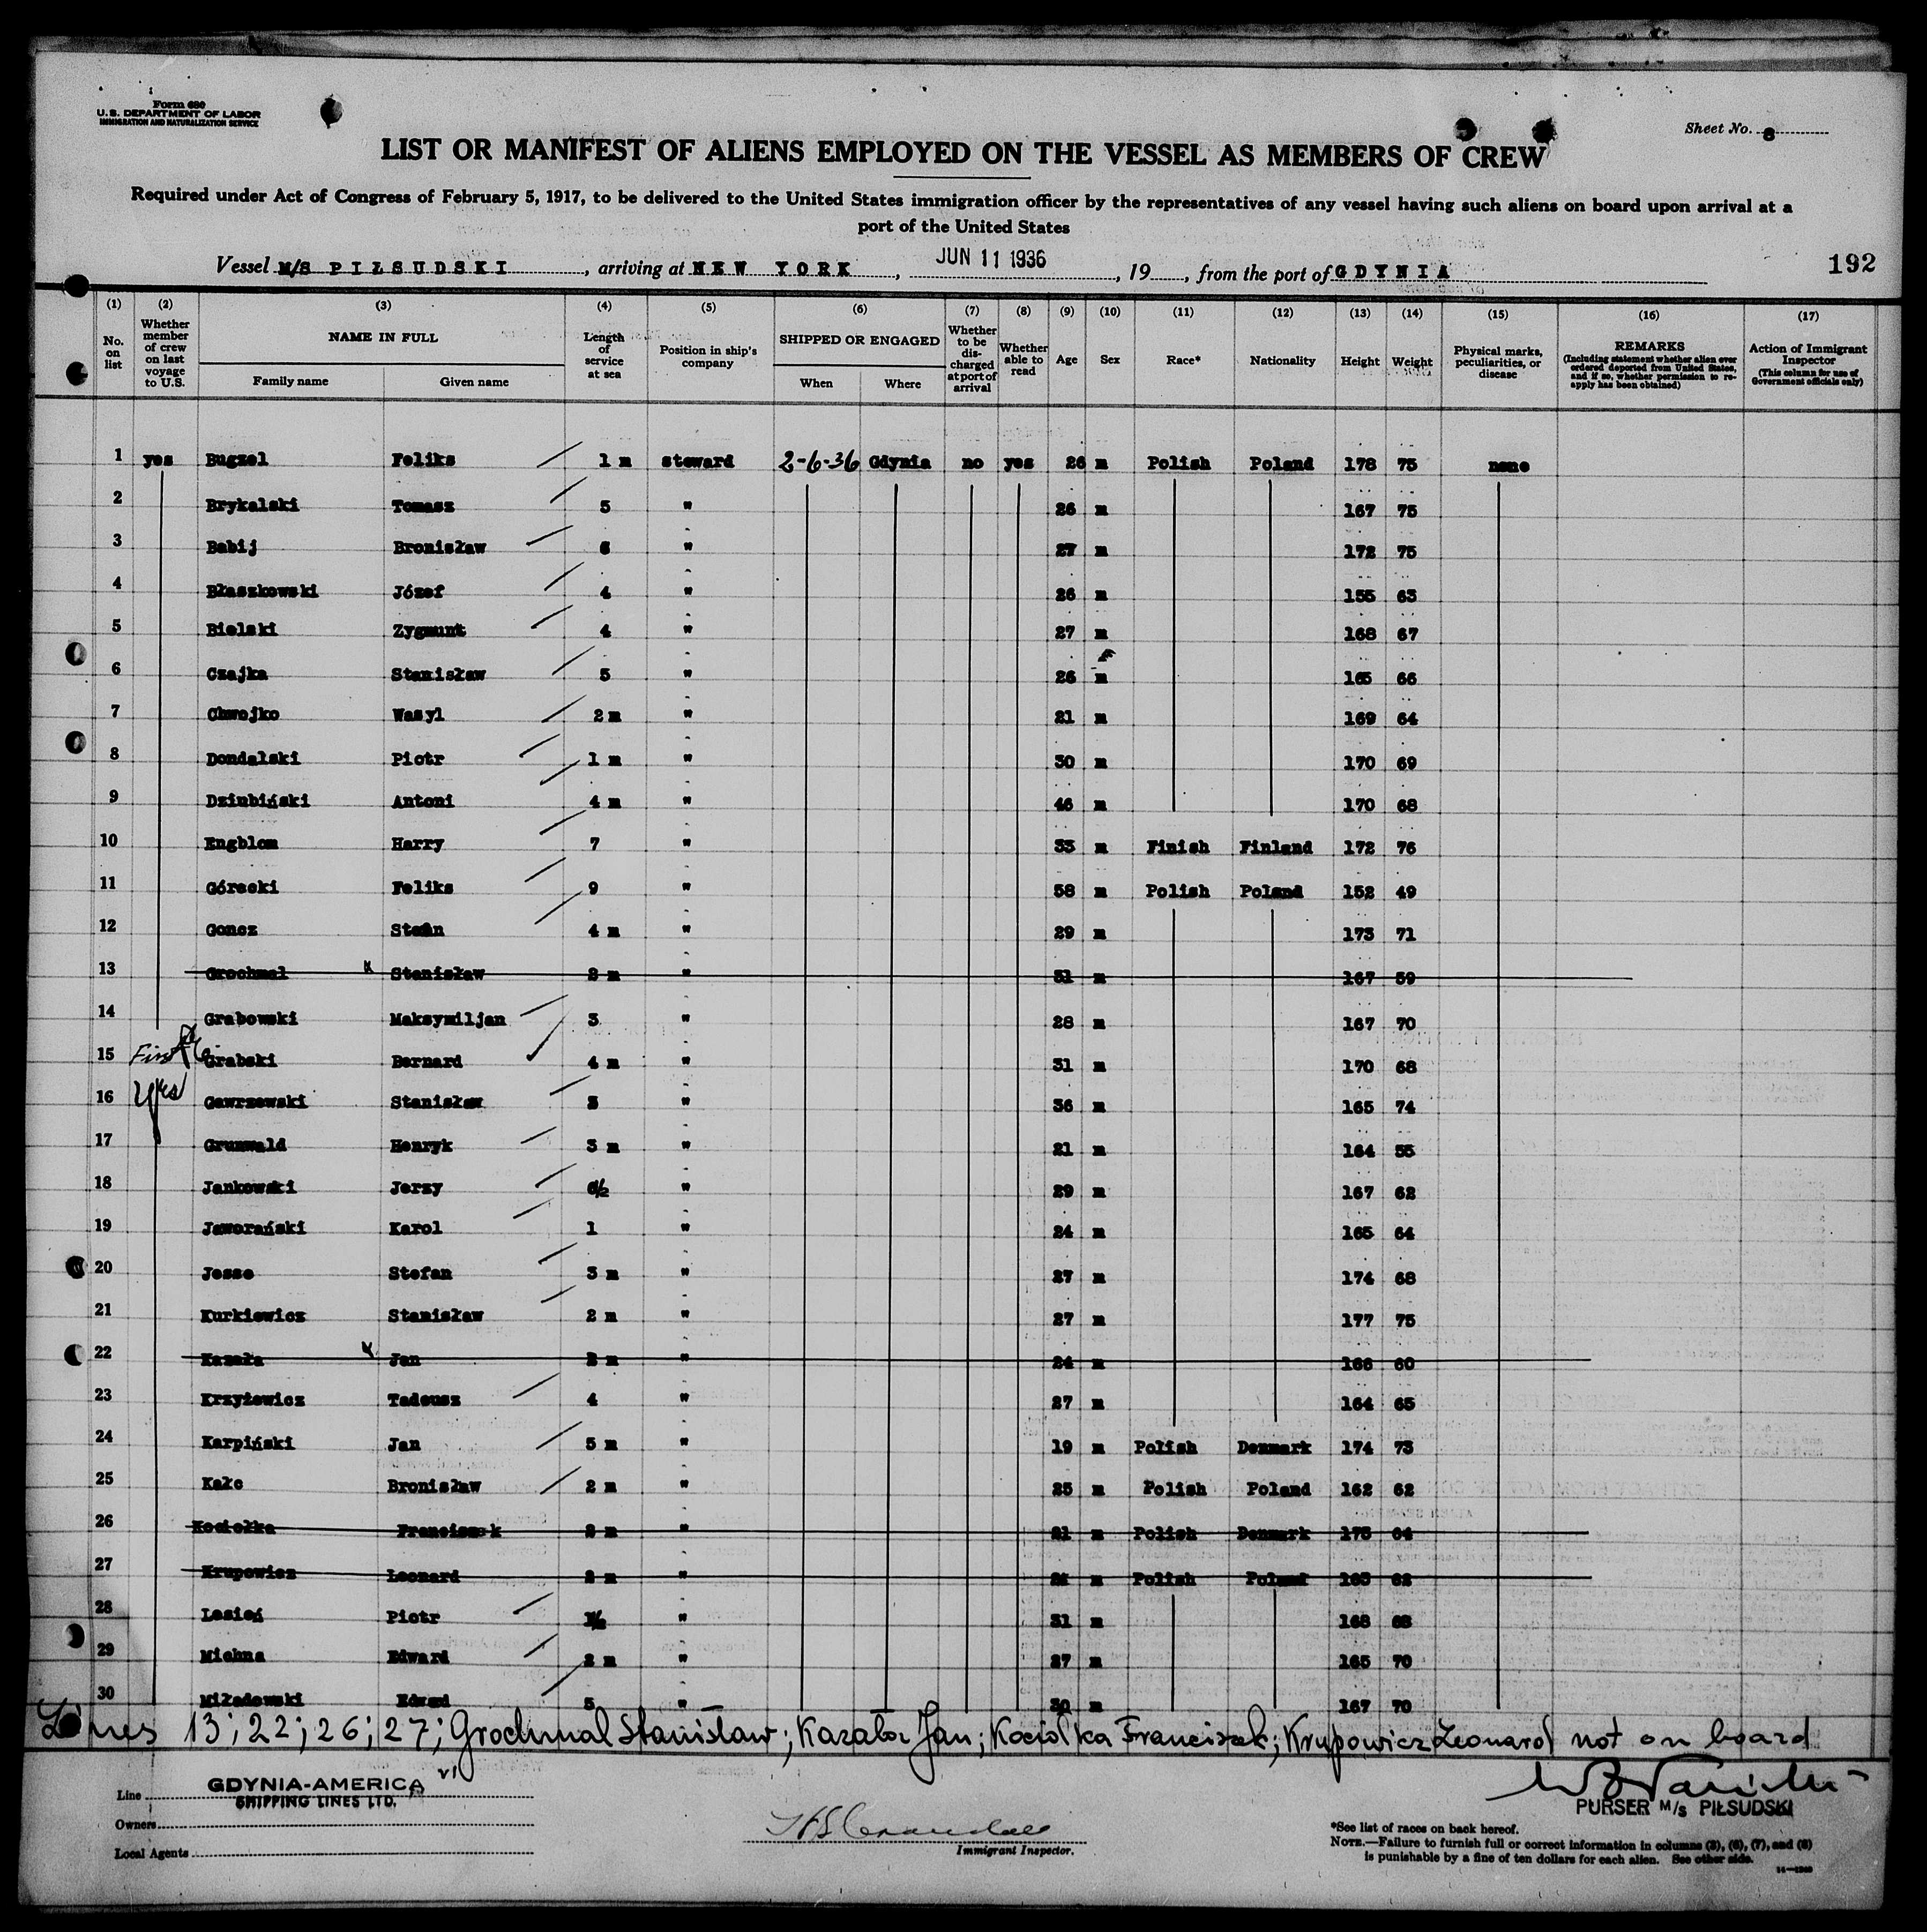 Form 680
U.S. DEPARTMENT OF LABOR
IMMIGRATION AND NATURALIZATION SERVICE
Sheet No. 8
LIST OR MANIFEST OF ALIENS EMPLOYED ON THE VESSEL AS MEMBERS OF CREW
Required under Act of Congress of February 5, 1917, to be delivered to the United States immigration officer by the representatives of any vessel having such aliens on board upon arrival at a
port of the United States
Vessel M/S PIŁSUDSKI, arriving at NEW YORK, JUN 11 1936, 19, from the port of GDYNIA
192
(1) (2) (3) (4) (5) (6) (7) (8) (9) (10) (11) (12) (13) (14) (15) (16) (17)
No. on list
Whether member of crew on last voyage to U.S.
NAME IN FULL
Family name Given name
Length of service at sea
Position in ship's company
SHIPPED OR ENGAGED
When Where
Whether to be discharged at port of arrival
Whether able to read
Age
Sex
Race*
Nationality
Height
Weight
Physical marks, peculiarities, or disease
REMARKS
(Including statement whether alien ever ordered deported from United States, and if so, whether permission to re-apply has been obtained)
Action of Immigrant Inspector
(This column for use of Government officials only)
1 yes Bugzel Feliks 1 m steward 2-6-36 Gdynia no yes 26 m Polish Poland 178 75 none
2 Brykalski Tomasz 5 " 26 m 167 75
3 Babij Bronisław 6 " 27 m 172 75
4 Błaszkowski Józef 4 " 26 m 155 63
5 Bielski Zygmunt 4 " 27 m 168 67
6 Czajka Stanisław 5 " 26 m 165 66
7 Chwojko Wasyl 2 m " 21 m 169 64
8 Dondalski Piotr 1 m " 30 m 170 69
9 Dziubiński Antoni 4 m " 46 m 170 68
10 Engblom Harry 7 " 33 m Finish Finland 172 76
11 Górecki Feliks 9 " 58 m Polish Poland 152 49
12 Goncz Stefan 4 m " 29 m 173 71
13 Grochmal Stanisław 2 m " 31 m 167 59
14 Grabowski Maksymiljan 3 " 28 m 167 70
15 First Grabski Bernard 4 m " 31 m 170 68
16 yes Gawrzewski Stanisław 3 " 36 m 165 74
17 Grunwald Henryk 3 m " 21 m 164 55
18 Jankowski Jerzy 6½ " 29 m 167 62
19 Jaworański Karol 1 " 24 m 165 64
20 Jesse Stefan 3 m " 27 m 174 68
21 Kurkiewicz Stanisław 2 m " 27 m 177 75
22 Kazała Jan 2 m " 24 m 166 60
23 Krzyżewicz Tadeusz 4 " 27 m 164 65
24 Karpiński Jan 5 m " 19 m Polish Denmark 174 73
25 Kałc Bronisław 2 m " 25 m Polish Poland 162 62
26 Kociołka Franciszek 2 m " 21 m Polish Denmark 175 64
27 Krupowicz Leonard 2 m " m Polish Poland 62
28 Lesień Piotr 1½ " 31 m 168 68
29 Michna Edward 2 m " 27 m 165 70
30 Miładowski Edward 5 " 30 m 167 70
Lines 13; 22; 26; 27; Grochmal Stanisław; Kazała Jan; Kociołka Franciszek; Krupowicz Leonard not on board
Line GDYNIA-AMERICA
SHIPPING LINES LTD.
Owners
Local Agents
Immigrant Inspector.
PURSER M/S PIŁSUDSKI
*See list of races on back hereof.
NOTE.—Failure to furnish full or correct information in columns (3), (6), (7), and (8)
is punishable by a fine of ten dollars for each alien. See other side.